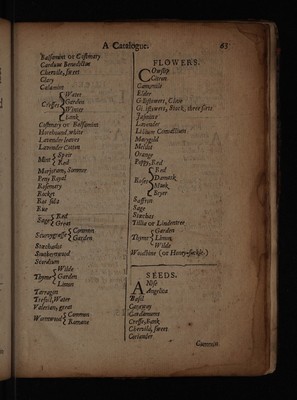 A Catalogue. 63
Balsamint or Costmary
Carduus Benedictus
Chervile, sweet
Clary
Calamint
Cresses { Water
Garden
Winter
Bank
Costmary or Balsamint
Horehound white
Lavender leaves
Lavender Cotton
Mint { Spear
Red
Marjoram, Summer
Peny Royal
Rosemary
Rocket
Ros solis
Rue
Sage { Red
Great
Scurvygrasse { Common
Garden
Stœchados
Southernwood
Scordium
Thyme { Wilde
Garden
Limon
Tarragon
Trefoil, Water
Valerian, great
Wormwood { Common
Romane
FLOWERS.
Cowslip
Citron
Camomile
Elder
Gilliflowers, Clove
Jasmine
Lavender
Lilium Convallium
Marygold
Melilot
Orange
Poppy, Red
Roses { Red
Damask
Musk
Bryer
Saffron
Sage
Stœchas
Tillia or Lindentree
Thyme { Garden
Limon
Wilde
Woodbine (or Honey-suckle.)
SEEDS.
Anise
Angelica
Basil
Caraway
Cardamoms
Cresse, Bank
Chervild, sweet
Coriander